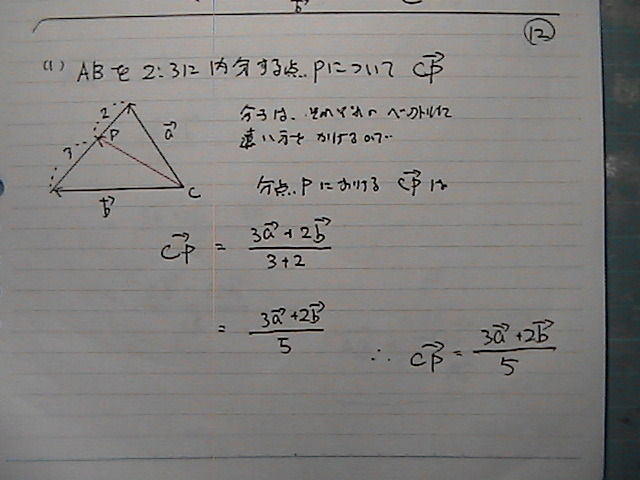 12
(1) ABを 2:3に 内分する点 Pについて CP→
2
P
a→
3
C
b→
分子は、それぞれの ベクトルに
遠い方を かけるので…
分点 Pにおける CP→ は
CP→ = (3a→ + 2b→) / (3+2)
= (3a→ + 2b→) / 5
∴ CP→ = (3a→ + 2b→) / 5